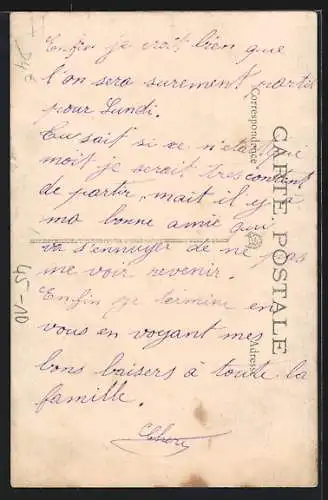 Enfin je croit bien que
l'on sera surement partit
pour Lundi.
Tu sait si ce n'etait
moit je serait tres content
de partir, mait il y a
ma bonne amie qui
va s'ennuyer de ne pas
me voir revenir.
Enfin je termine en
vous en voyant mes
bons baisers à toute la
famille.
CARTE POSTALE
Correspondance
Adresse
45-10